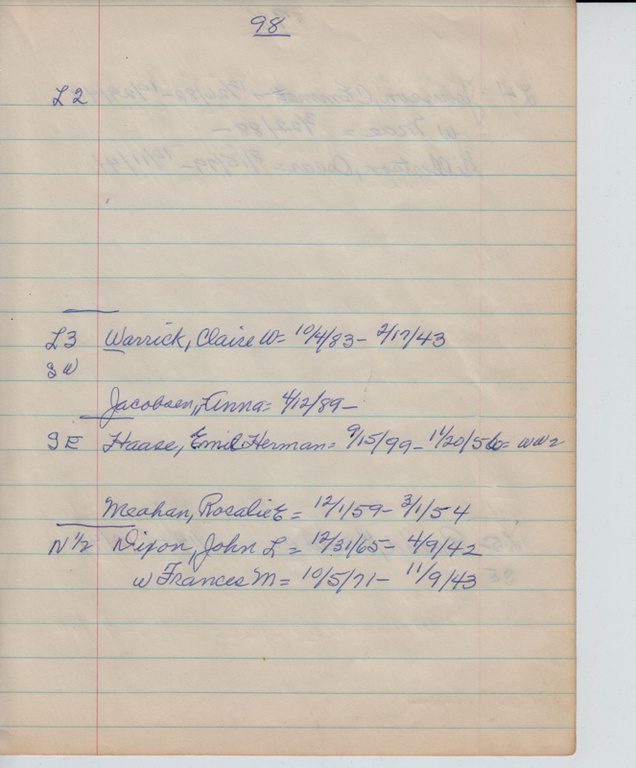 98
L2
L3 Warrick, Claire W= 10/4/83- 2/17/43
SW
Jacobsen, Anna= 4/12/89-
SE Haase, Emil Herman= 9/15/99- 11/20/56= WW2
Meahan, Rosalie E= 12/1/59- 3/1/54
N 1/2 Dixon, John L= 12/31/65- 4/9/42
w Frances M= 10/5/71- 11/9/43